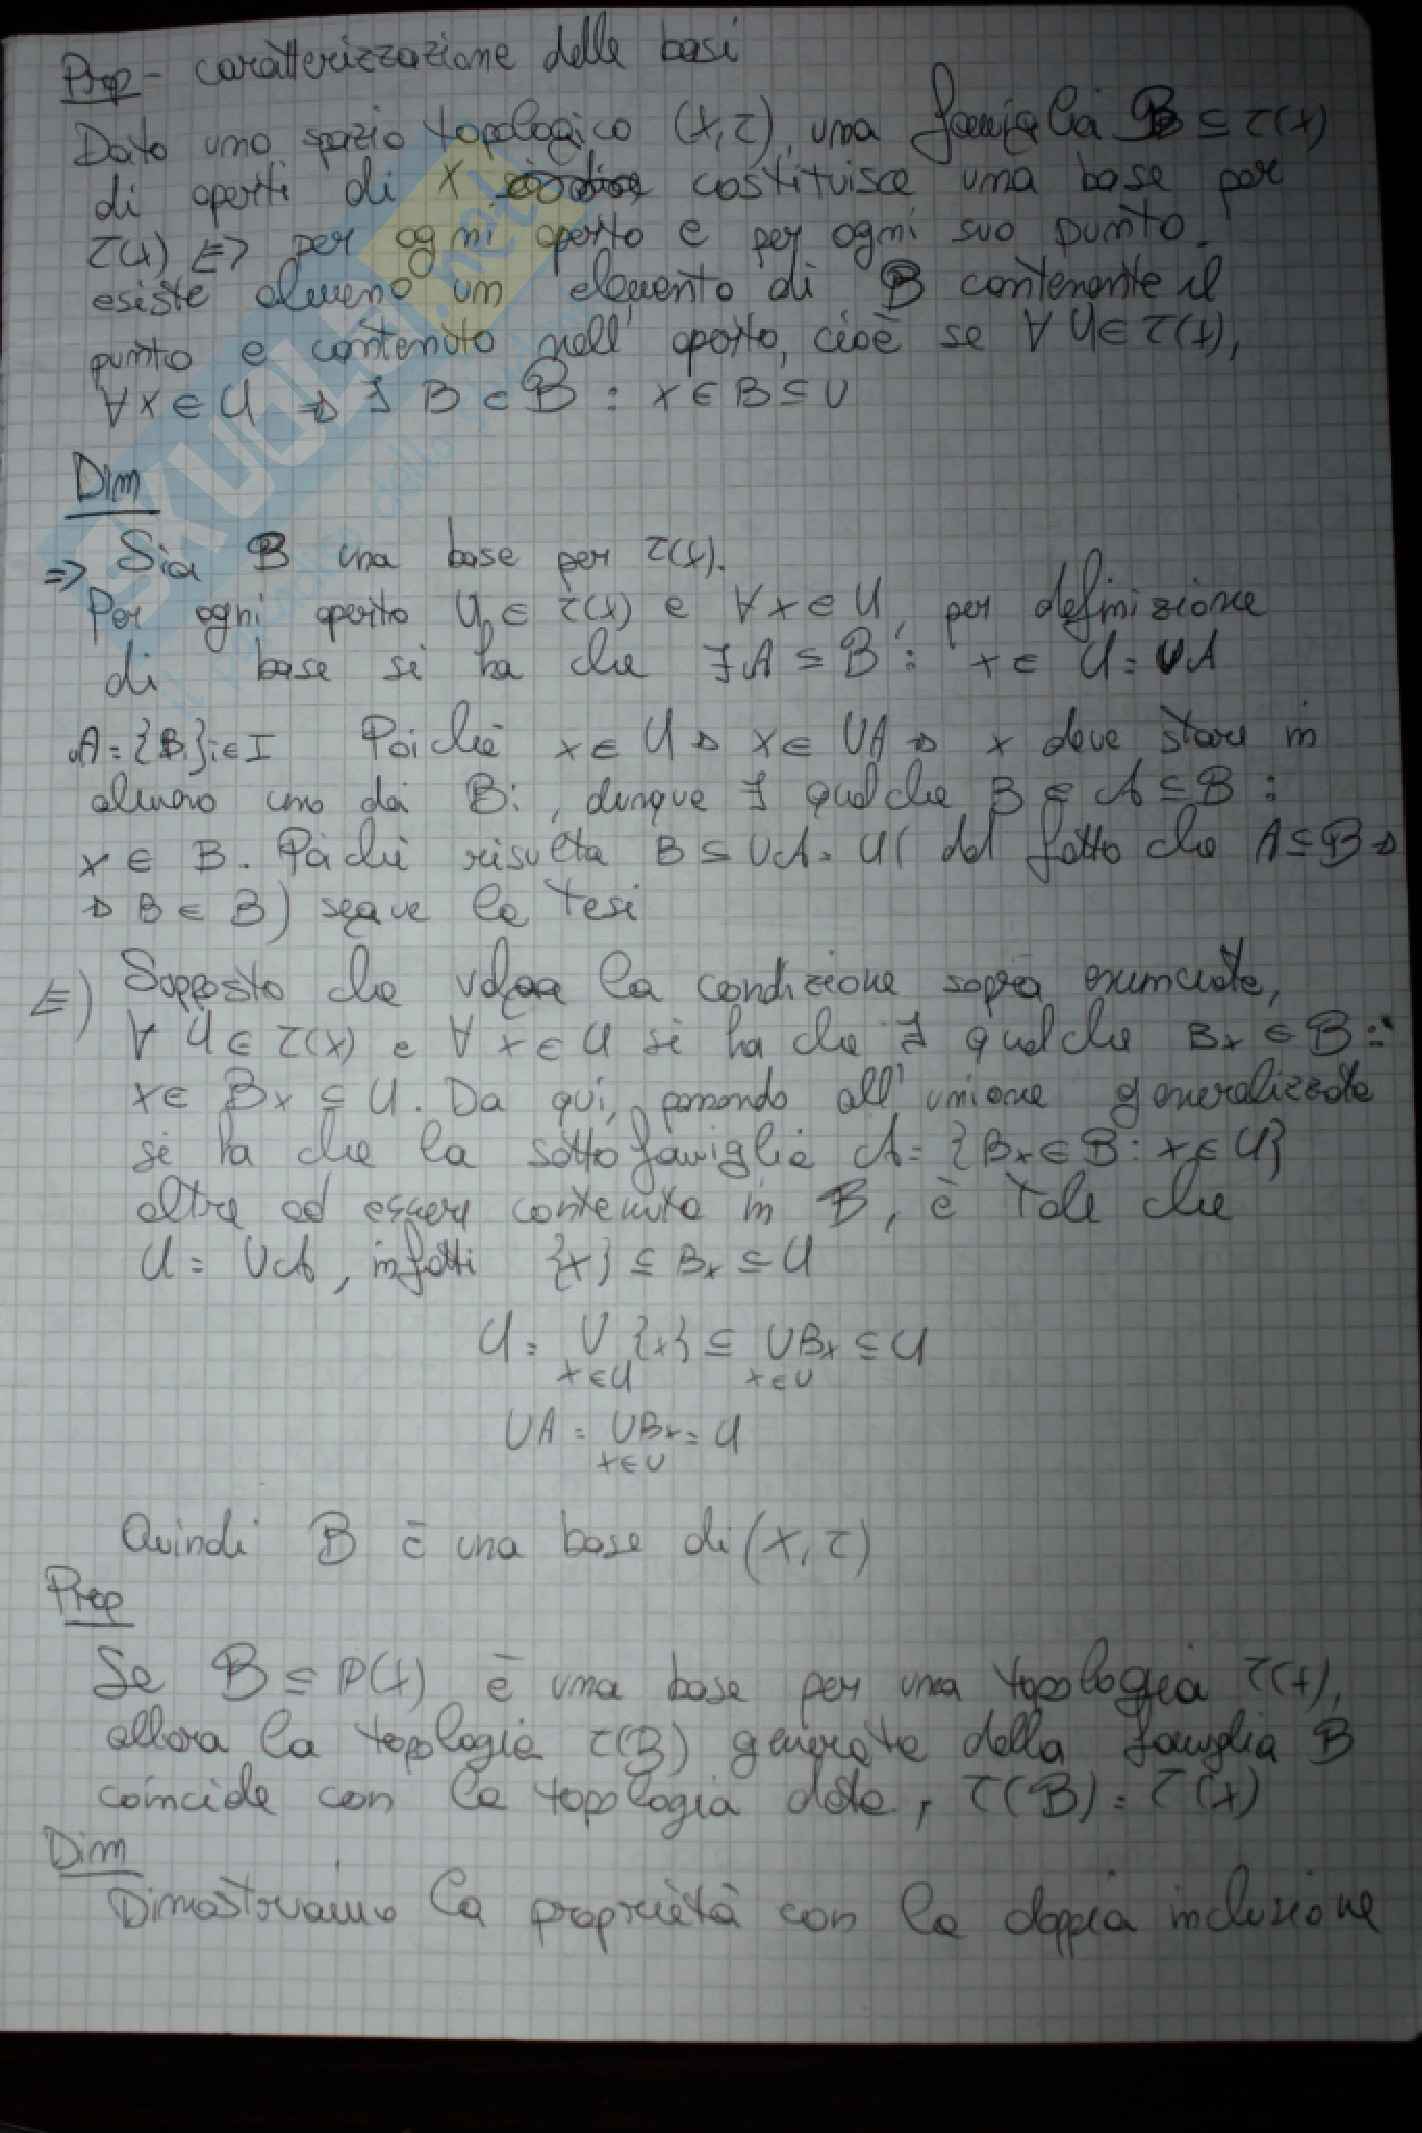 Prop - caratterizzazione delle basi
Dato uno spazio topologico (X,τ), una famiglia B ⊆ τ(X)
di aperti di X costituisce una base per
τ(X) <=> per ogni aperto e per ogni suo punto
esiste almeno un elemento di B contenente il
punto e contenuto nell' aperto, cioè se ∀ U ∈ τ(X),
∀ x ∈ U => ∃ B ∈ B : x ∈ B ⊆ U
Dim
=> Sia B una base per τ(X).
Per ogni aperto U ∈ τ(X) e ∀ x ∈ U, per definizione
di base si ha che ∃ A ⊆ B : x ∈ U = ∪A
A = {Bi}i∈I Poichè x ∈ U => x ∈ ∪A => x deve stare in
almeno uno dei Bi, dunque ∃ qualche B ∈ A ⊆ B :
x ∈ B. Poichè risulta B ⊆ ∪A = U ( dal fatto che A ⊆ B =>
=> B ∈ B) segue la tesi
<=) Supposto che valga la condizione sopra enunciata,
∀ U ∈ τ(X) e ∀ x ∈ U si ha che ∃ qualche Bx ∈ B :
x ∈ Bx ⊆ U. Da qui, passando all' unione generalizzata
si ha che la sottofamiglia A = {Bx ∈ B : x ∈ U}
oltre ad essere contenuta in B, è tale che
U = ∪A, infatti {x} ⊆ Bx ⊆ U
U = ∪ {x} ⊆ ∪Bx ⊆ U
x∈U x∈U
∪A = ∪Bx = U
x∈U
Quindi B è una base di (X,τ)
Prop
Se B ⊆ P(X) è una base per una topologia τ(X),
allora la topologia τ(B) generata dalla famiglia B
coincide con la topologia data, τ(B) = τ(X)
Dim
Dimostriamo la proprietà con la doppia inclusione
SKUOLA.net